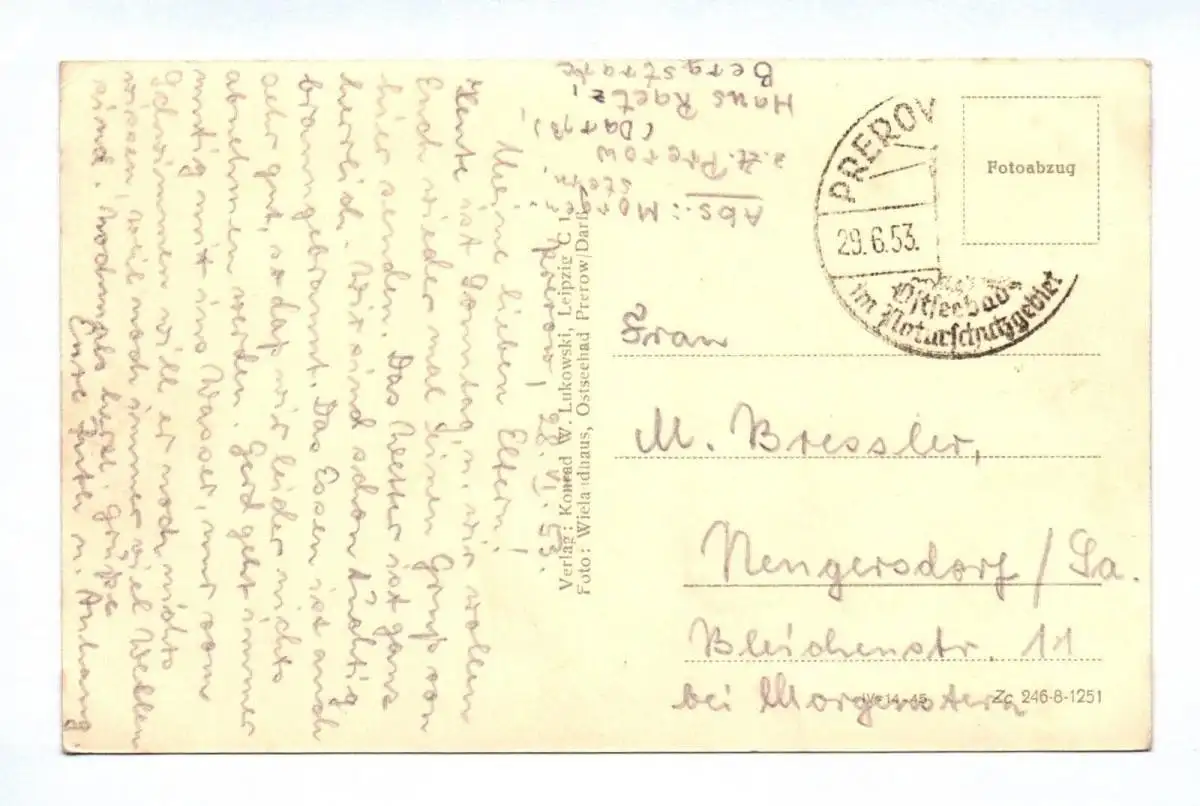 Prerow, 28. VI. 53.
Meine lieben Eltern!
Heute ist Sonntag u. wir wollen
Euch wieder mal einen Gruß von
hier senden. Das Wetter ist ganz
herrlich. Wir sind schon tüchtig
braungebrannt. Das Essen ist auch
sehr gut, sodaß wir leider nicht
abnehmen werden. Gerd geht immer
mutig mit ins Wasser, nur vom
Schwimmen will er noch nichts
wissen, weil noch immer viel Wellen
sind. Nochmals herzl. Grüße
Eure u. Anhang.
Abs.: Morgen-
stern,
z. Zt. Prerow
(Darß),
Haus Raetz,
Bergstraße
Verlag: Konrad W. Lukowski, Leipzig C 1
Foto: Wielandhaus, Ostseebad Prerow/Darß
PREROW
29.6.53.
Ostseebad
im Naturschutzgebiet
Fotoabzug
Frau
M. Bressler,
Neugersdorf/Sa.
Bleichenstr. 11
bei Morgenstern
IV-14-45 Zc 246-8-1251